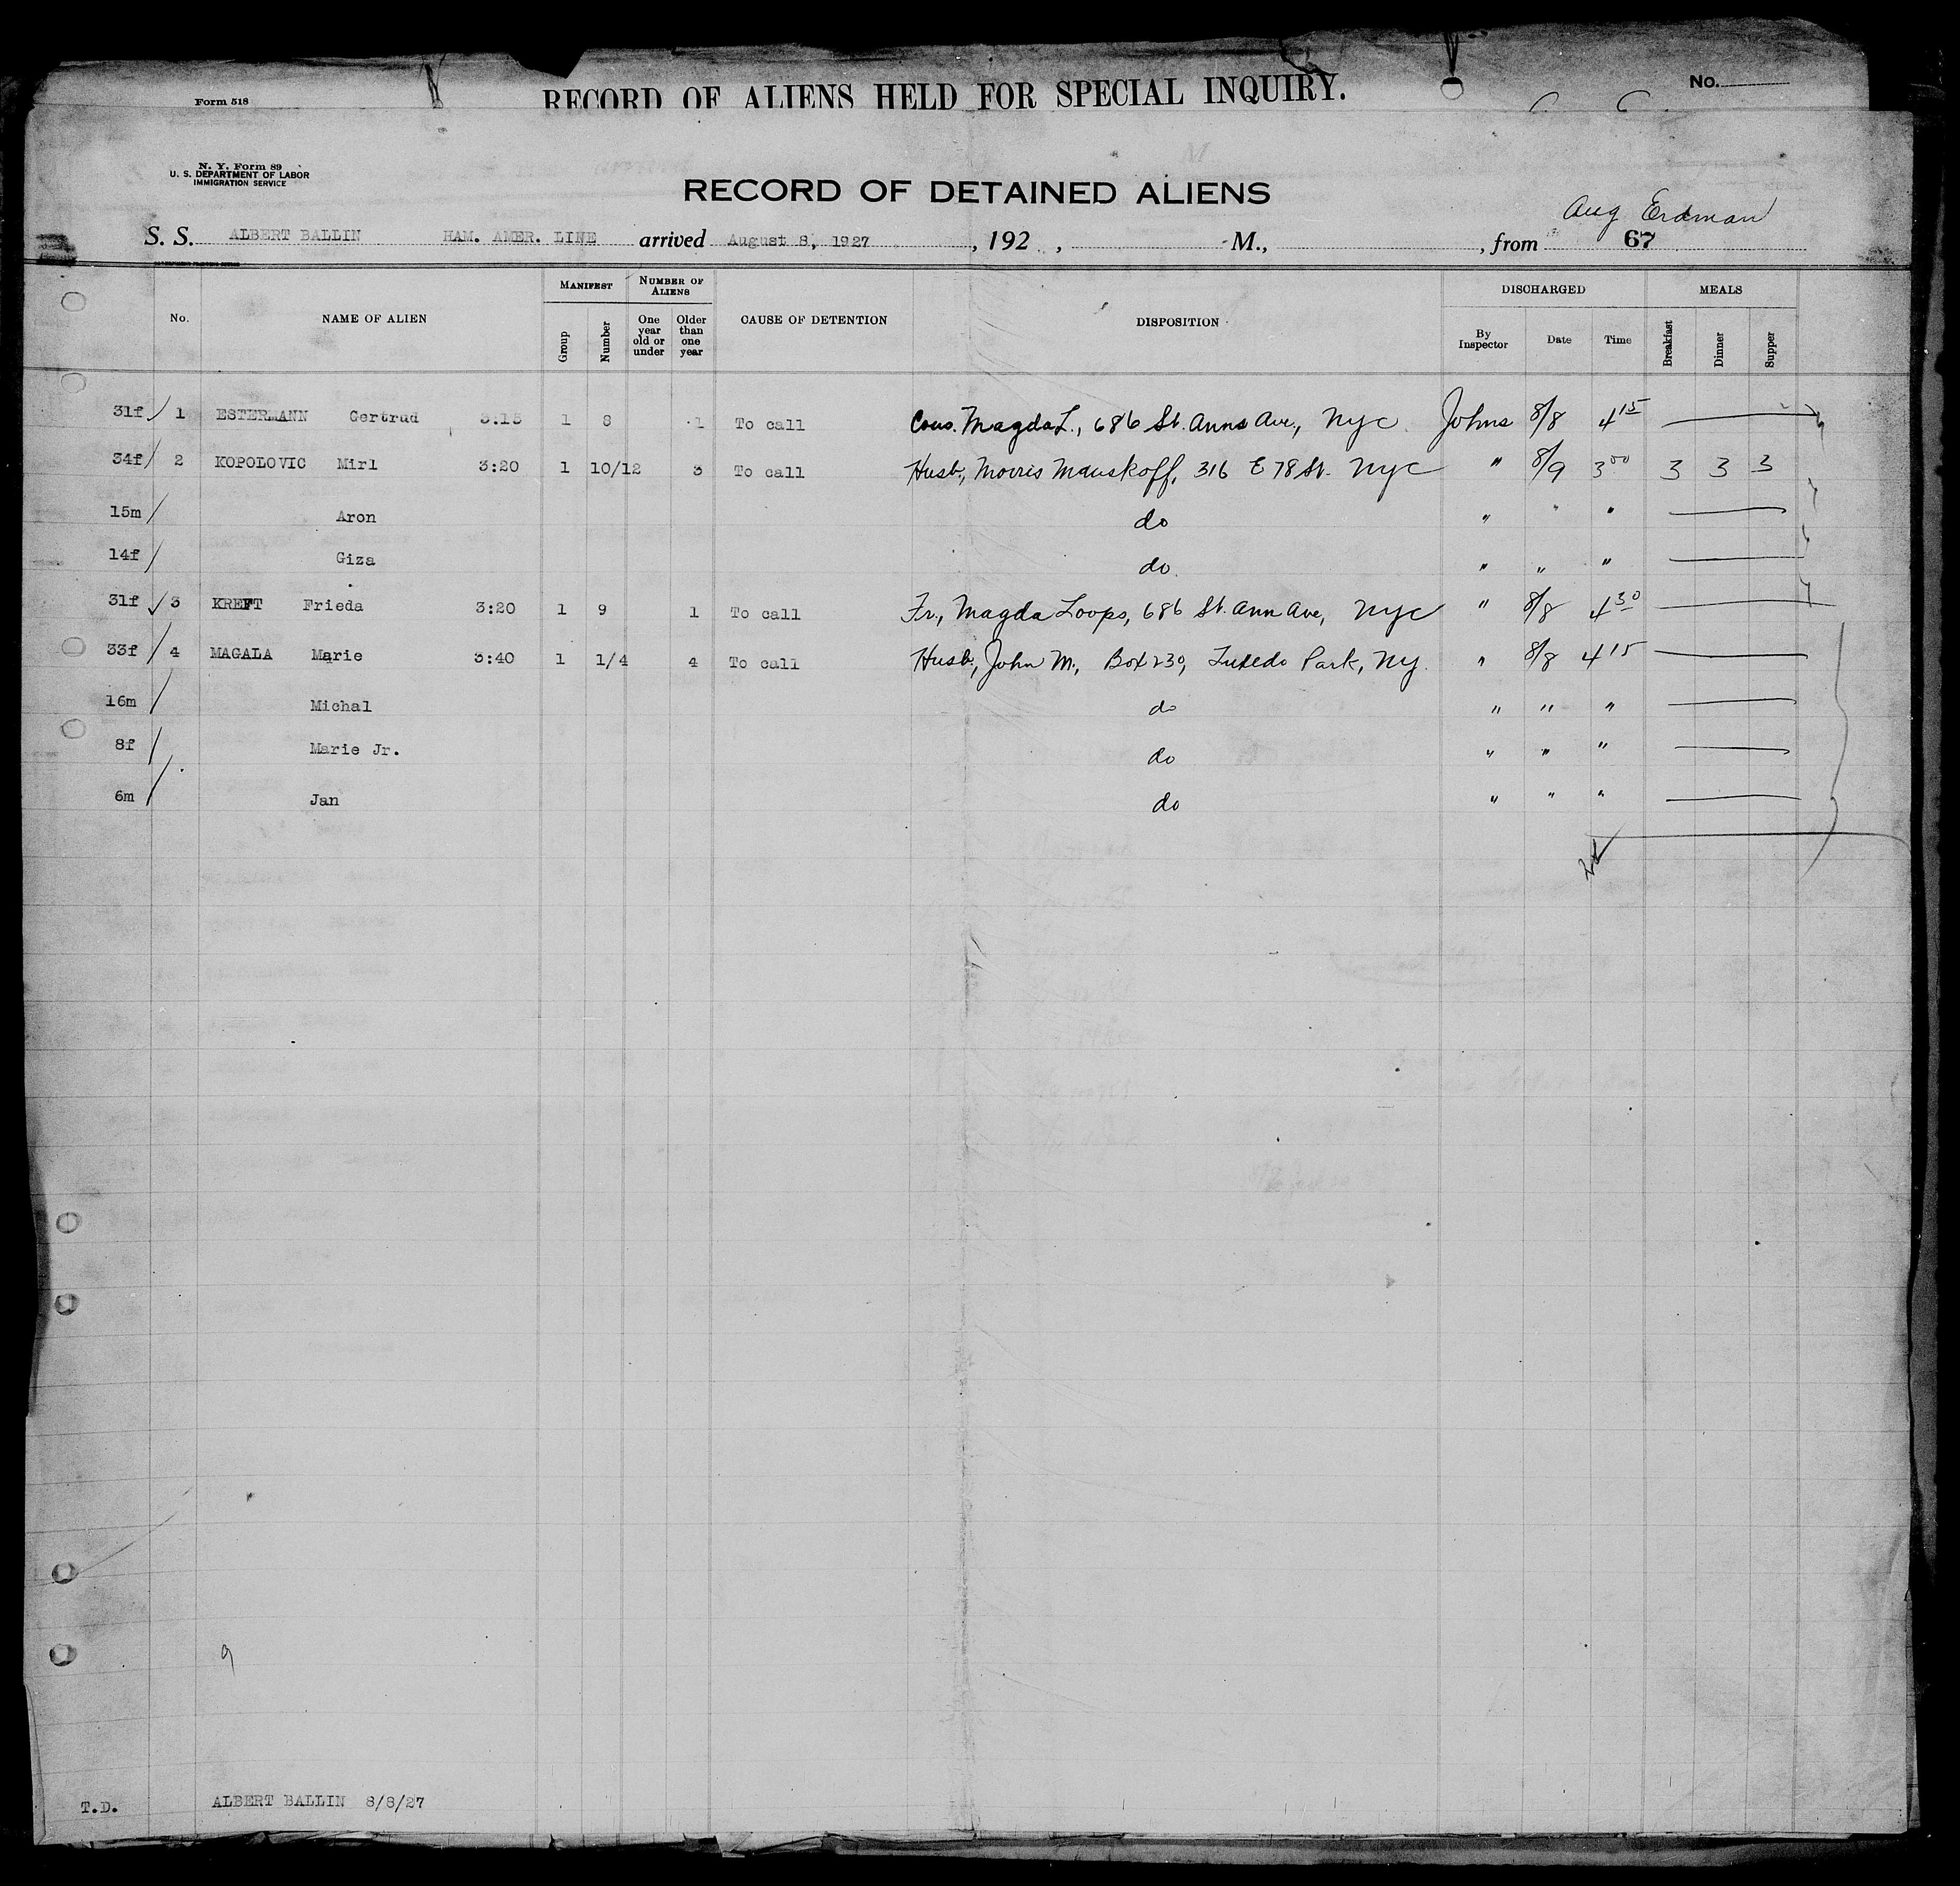 Form 518
RECORD OF ALIENS HELD FOR SPECIAL INQUIRY.
No.
N. Y. Form 89
U. S. DEPARTMENT OF LABOR
IMMIGRATION SERVICE
RECORD OF DETAINED ALIENS
Aug Erdman
S. S. ALBERT BALLIN HAM. AMER. LINE arrived August 8, 1927 , 192 , M., , from 67
No. NAME OF ALIEN MANIFEST Group Number NUMBER OF ALIENS One year old or under Older than one year CAUSE OF DETENTION DISPOSITION DISCHARGED By Inspector Date Time MEALS Breakfast Dinner Supper
31f 1 ESTERMANN Gertrud 3:15 1 8 1 To call Cous. Magda L., 686 St. Anns Ave., NYC Johns 8/8 4 15
34f 2 KOPOLOVIC Mirl 3:20 1 10/12 3 To call Husb, Morris Mauskoff, 316 E 78 St. NYC " 8/9 3 00 3 3 3
15m Aron do " " "
14f Giza do " " "
31f 3 KREFT Frieda 3:20 1 9 1 To call Fr., Magda Loops, 686 St. Ann Ave, NYC " 8/8 4 30
33f 4 MAGALA Marie 3:40 1 1/4 4 To call Husb, John M., Box 230, Tuxedo Park, NY. " 8/8 4 15
16m Michal do " " "
8f Marie Jr. do " " "
6m Jan do " " "
9
T.D. ALBERT BALLIN 8/8/27